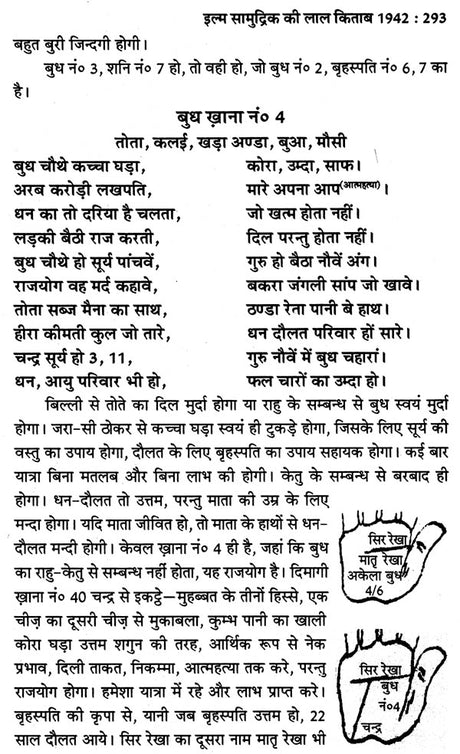 इल्म सामुद्रिक की लाल किताब 1942 : 293
बहुत बुरी जिन्दगी होगी।
बुध नं० 3, शनि नं० 7 हो, तो वही हो, जो बुध नं० 2, बृहस्पति नं० 6, 7 का
है।
बुध ख़ाना नं० 4
तोता, कलई, खड़ा अण्डा, बुआ, मौसी
बुध चौथे कच्चा घड़ा, कोरा, उम्दा, साफ।
अरब करोड़ी लखपति, मारे अपना आप(आत्महत्या)।
धन का तो दरिया है चलता, जो खत्म होता नहीं।
लड़की बैठी राज करती, दिल परन्तु होता नहीं।
बुध चौथे हो सूर्य पांचवें, गुरु हो बैठा नौवें अंग।
राजयोग वह मर्द कहावे, बकरा जंगली सांप जो खावे।
तोता सब्ज मैना का साथ, ठण्डा रेता पानी बे हाथ।
हीरा कीमती कुल जो तारे, धन दौलत परिवार हों सारे।
चन्द्र सूर्य हो 3, 11, गुरु नौवें में बुध चहारां।
धन, आयु परिवार भी हो, फल चारों का उम्दा हो।
बिल्ली से तोते का दिल मुर्दा होगा या राहु के सम्बन्ध से बुध स्वयं मुर्दा
होगा। जरा-सी ठोकर से कच्चा घड़ा स्वयं ही टुकड़े होगा, जिसके लिए सूर्य की
वस्तु का उपाय होगा, दौलत के लिए बृहस्पति का उपाय सहायक होगा। कई बार
यात्रा बिना मतलब और बिना लाभ की होगी। केतु के सम्बन्ध से बरबाद ही
होगा। धन-दौलत तो उत्तम, परन्तु माता की उम्र के लिए
मन्दा होगा। यदि माता जीवित हो, तो माता के हाथों से धन-
दौलत मन्दी होगी। केवल ख़ाना नं० 4 ही है, जहां कि बुध
का राहु-केतु से सम्बन्ध नहीं होता, यह राजयोग है। दिमागी
ख़ाना नं० 40 चन्द्र से इकट्ठे—मुहब्बत के तीनों हिस्से, एक
चीज़ का दूसरी चीज़ से मुकाबला, कुम्भ पानी का खाली
कोरा घड़ा उत्तम शगुन की तरह, आर्थिक रूप से नेक
प्रभाव, दिली ताकत, निकम्मा, आत्महत्या तक करे, परन्तु
राजयोग होगा। हमेशा यात्रा में रहे और लाभ प्राप्त करे।
बृहस्पति की कृपा से, यानी जब बृहस्पति उत्तम हो, 22
साल दौलत आये। सिर रेखा का दूसरा नाम मातृ रेखा भी
सिर रेखा
मातृ रेखा
अकेला बुध
4/6
सिर रेखा
बुध
नं०4
चन्द्र